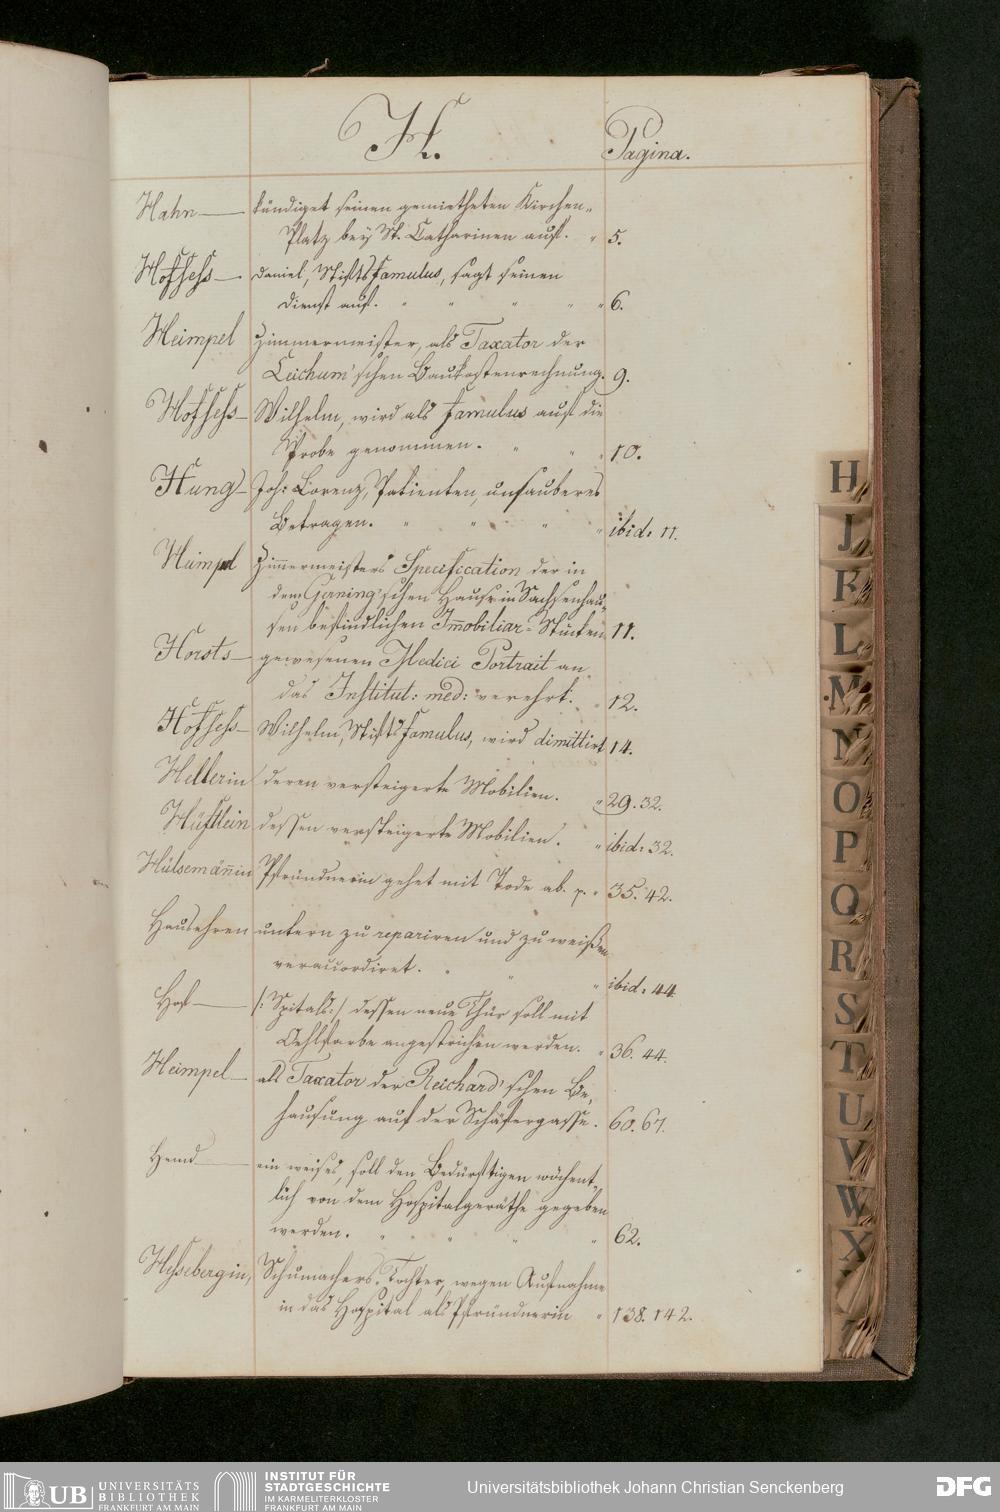 H.
Pagina.
Hahn kündiget seinen gemietheten Kirchen-
Platz bey St. Catharinen auf. 5.
Hofsess Daniel, Stifts Famulus, sagt seinen
Dienst auf. 6.
Heimpel Zimmermeister, als Taxator der
Leichum'schen Baukostenrechnung. 9.
Hofsess Wilhelm, wird als Famulus auf die
Probe genommen. 10.
Hung Joh: Lorenz, Patienten, unsauberes
Betragen. ibid: 11.
Heimpel Zimmermeisters Specification der in
dem Gerning'schen Hause in Sachsenhau-
sen befindlichen Immobiliar-Stücken 11.
Horsts gewesenen Medici Portrait an
das Institut: med: verehrt. 12.
Hofsess Wilhelm, Stifts Famulus, wird dimittirt 14.
Hellerin deren versteigerte Mobilien. 29. 32.
Hüftlein dessen versteigerte Mobilien. ibid: 32.
Hülsemännin Pfründnerin gehet mit Tode ab. p. 35. 42.
Hausehren untern zu repariren und zu weißen
verauordiret. ibid: 44
Hof /: Spitals :/ dessen neue Thür soll mit
Oehlfarbe angestrichen werden. 36. 44.
Heimpel als Taxator der Reichard'schen Be-
hausung auf der Schäfergasse. 60. 67.
Hemd ein weises, soll den Bedürftigen wöchent-
lich von dem Hospitalgeräthe gegeben
werden. 62.
Hessebergin, Schumachers Tochter, wegen Aufnahme
in das Hospital als Pfründnerin 138. 142.
H
J
K
L
M
N
O
P
Q
R
S
T
U
V
W
X
Z
UB UNIVERSITÄTS
BIBLIOTHEK
FRANKFURT AM MAIN
INSTITUT FÜR
STADTGESCHICHTE
IM KARMELITERKLOSTER
FRANKFURT AM MAIN
Universitätsbibliothek Johann Christian Senckenberg
DFG